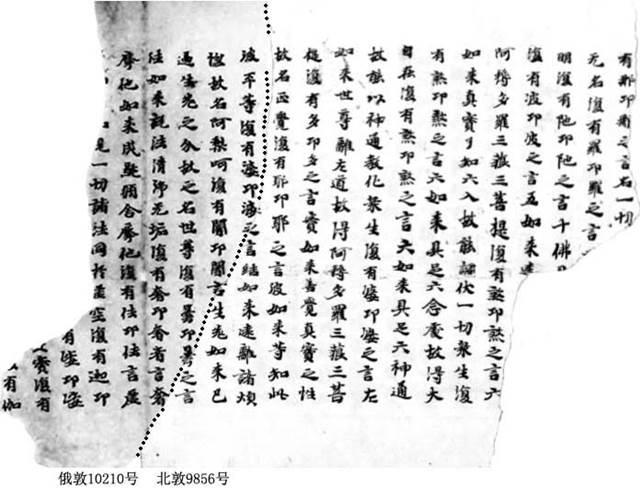 有那印那之言名一切
无名復有羅印羅之言
明復有陁印陁之言十佛
復有波印波之言五如来
阿耨多羅三藐三菩提復有煞印煞之言六
如来真實了知六入故能調伏一切衆生復
有煞印煞之言六如来具足六念處故得大
自在復有煞印煞之言六如来具足六神通
故能以神通教化衆生復有婆印婆之言左
如来世尊離左道故得阿耨多羅三藐三菩
提復有多印多之言實如来善覺真實之性
故名正覺復有耶印耶之言彼如来等知此
彼平等復有婆印婆之言結如来遠離諸煩
惱故名阿梨呵復有闍印闍言生死如来已
過生死之分故之名世尊復有曇印曇之言
法如来說法清淨无垢復有奢印奢者言奢
摩他如来成熟奢摩他復有佉印佉言虛
見一切諸法同於虛空復有迦印
有婆印婆
實復有
有伽
俄敦10210号 北敦9856号